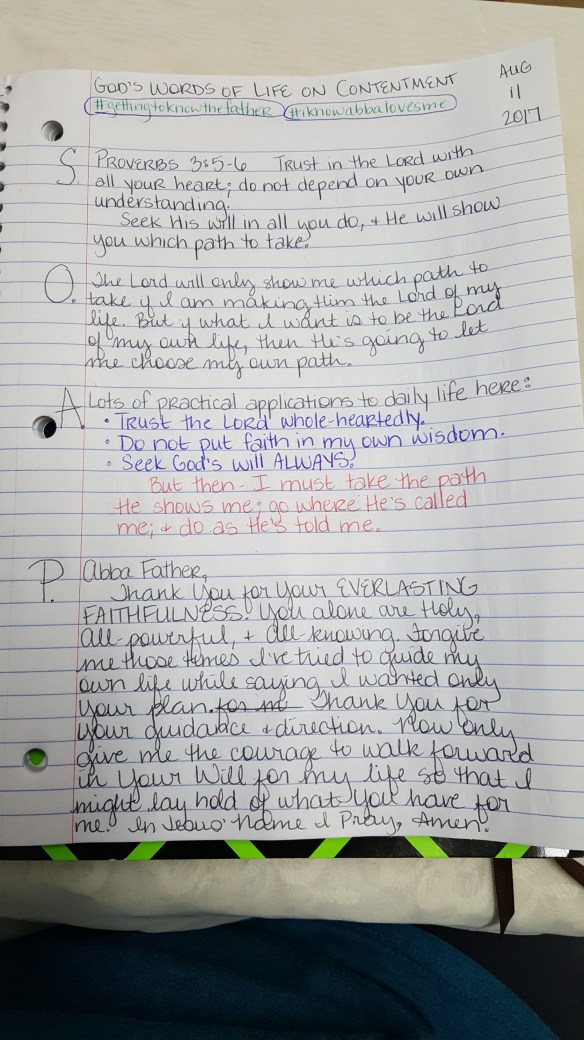 GOD'S WORDS OF LIFE ON CONTENTMENT
#gettingtoknowthefather #iknowabbalovesme
AUG
11
2017
S. PROVERBS 3:5-6 TRUST in the LORD with
all youR heart; do not depend on youR own
understanding.
Seek His will in all you do, + He will show
you which path to take.
O. The Lord will only show me which path to
take if I am making Him the Lord of my
life. But if what I want is to be the Lord
of my own life, then He's going to let
me choose my own path.
A. Lots of practical applications to daily life here:
• Trust the Lord whole-heartedly.
• Do not put faith in my own wisdom.
• Seek God's will ALWAYS.
But then - I must take the path
He shows me; go where He's called
me; + do as He's told me.
P. Abba Father,
Thank You for Your EVERLASTING
FAITHFULNESS. You alone are Holy,
all-powerful, + all-knowing. Forgive
me those times I've tried to guide my
own life while saying I wanted only
Your plan. for m Thank You for
your guidance + direction. Now only
give me the courage to walk forward
in Your Will for my life so that I
might lay hold of what You have for
me. In Jesus' Name I Pray, Amen.